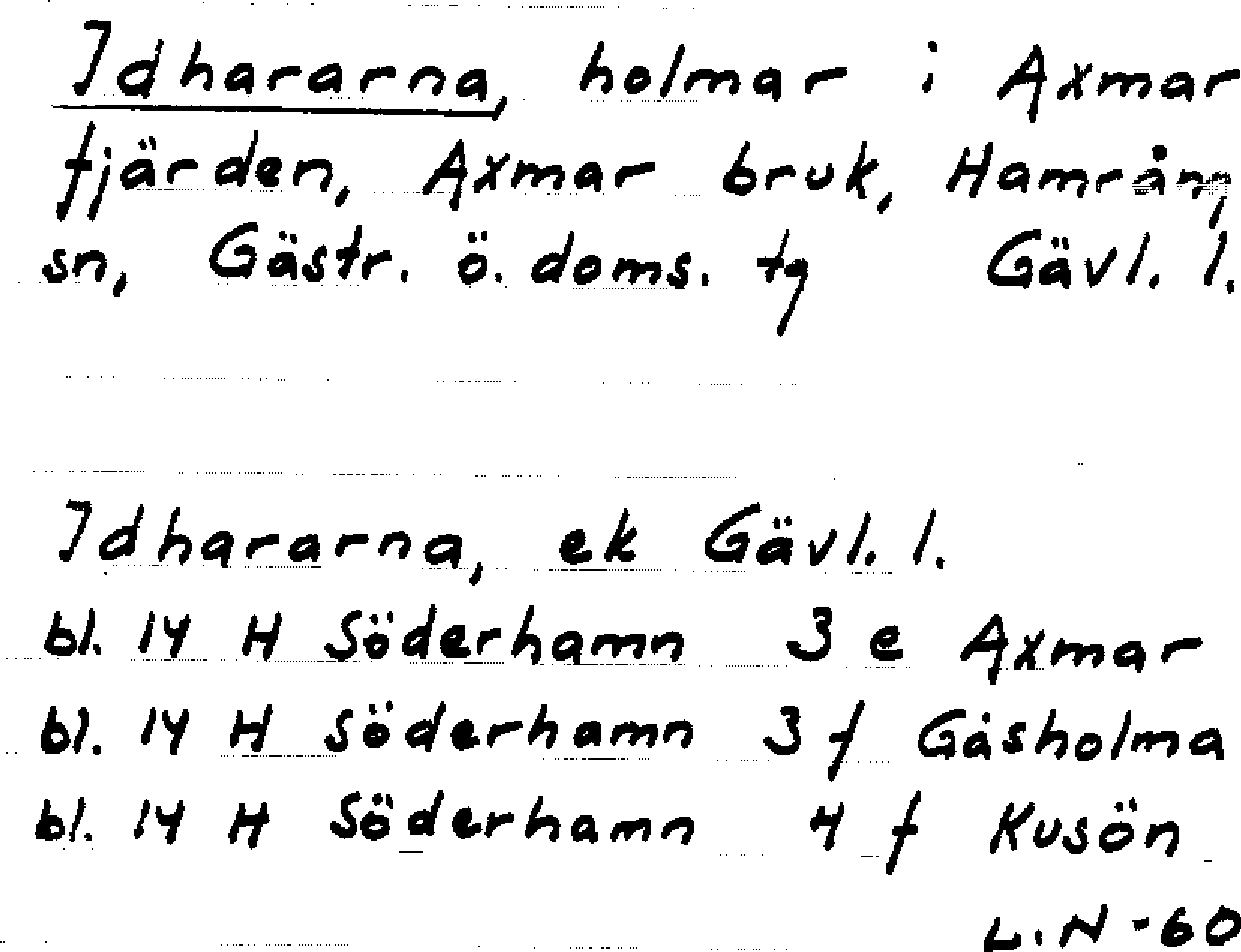 Idhararna, holmar i Axmar
fjärden, Axmar bruk, Hamrång
sn, Gästr. ö. doms. tg Gävl. l.
Idhararna, ek Gävl. l.
bl. 14 H Söderhamn 3 e Axmar
bl. 14 H Söderhamn 3 f Gåsholma
bl. 14 H Söderhamn 4 f Kusön
L.N -60